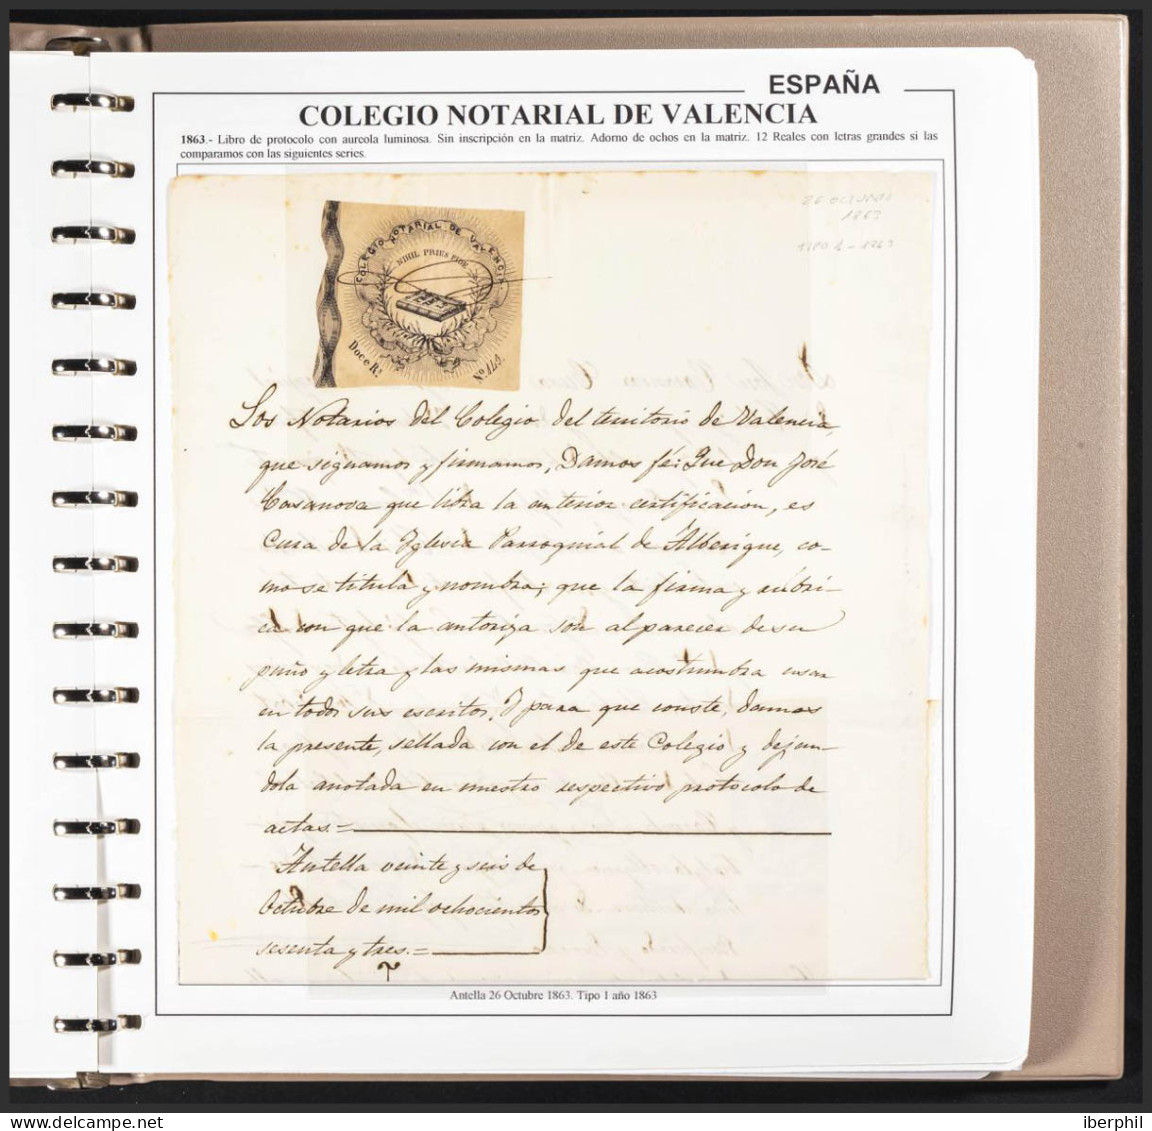 ESPAÑA
COLEGIO NOTARIAL DE VALENCIA
1863.- Libro de protocolo con aureola luminosa. Sin inscripción en la matriz. Adorno de ochos en la matriz. 12 Reales con letras grandes si las
comparamos con las siguientes series.
26 OCTUBRE
1863
TIPO 1 - 1863
COLEGIO NOTARIAL DE VALENCIA
NIHIL PRIUS FIDE
Doce Rs.
No. 179.
Los Notarios del Colegio del territorio de Valencia,
que signamos y firmamos, Damos fé: Que Don José
Casanova que libra la anterior certificacion, es
Cura de la Iglesia Parroquial de Alberique, co-
mo se titula y nombra; que la firma y rubri-
ca con que la autoriza son al parecer de su
puño y letra y las mismas que acostumbra usar
en todos sus escritos. Y para que conste, damos
la presente, sellada con el de este Colegio y dejan-
dola anotada en nuestro respectivo protocolo de
actas.=
Antella veinte y seis de
Octubre de mil ochocientos
sesenta y tres.=
Antella 26 Octubre 1863. Tipo 1 año 1863
www.delcampe.net
iberphil